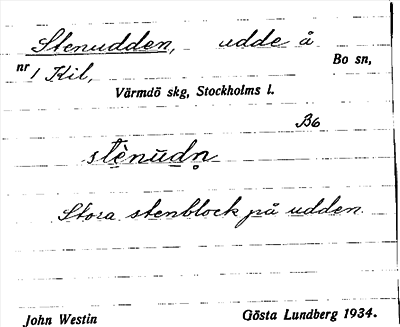 Stenudden, udde å
Bo sn,
nr 1 Kil,
Värmdö skg, Stockholms l.
B6
stènùdn̥
Stora stenblock på udden.
John Westin Gösta Lundberg 1934.